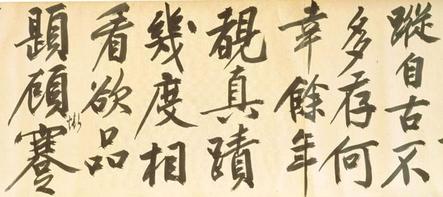 蹤自古不
多存何
幸餘年
覩真蹟
幾度相
看欲品
題顧蹇